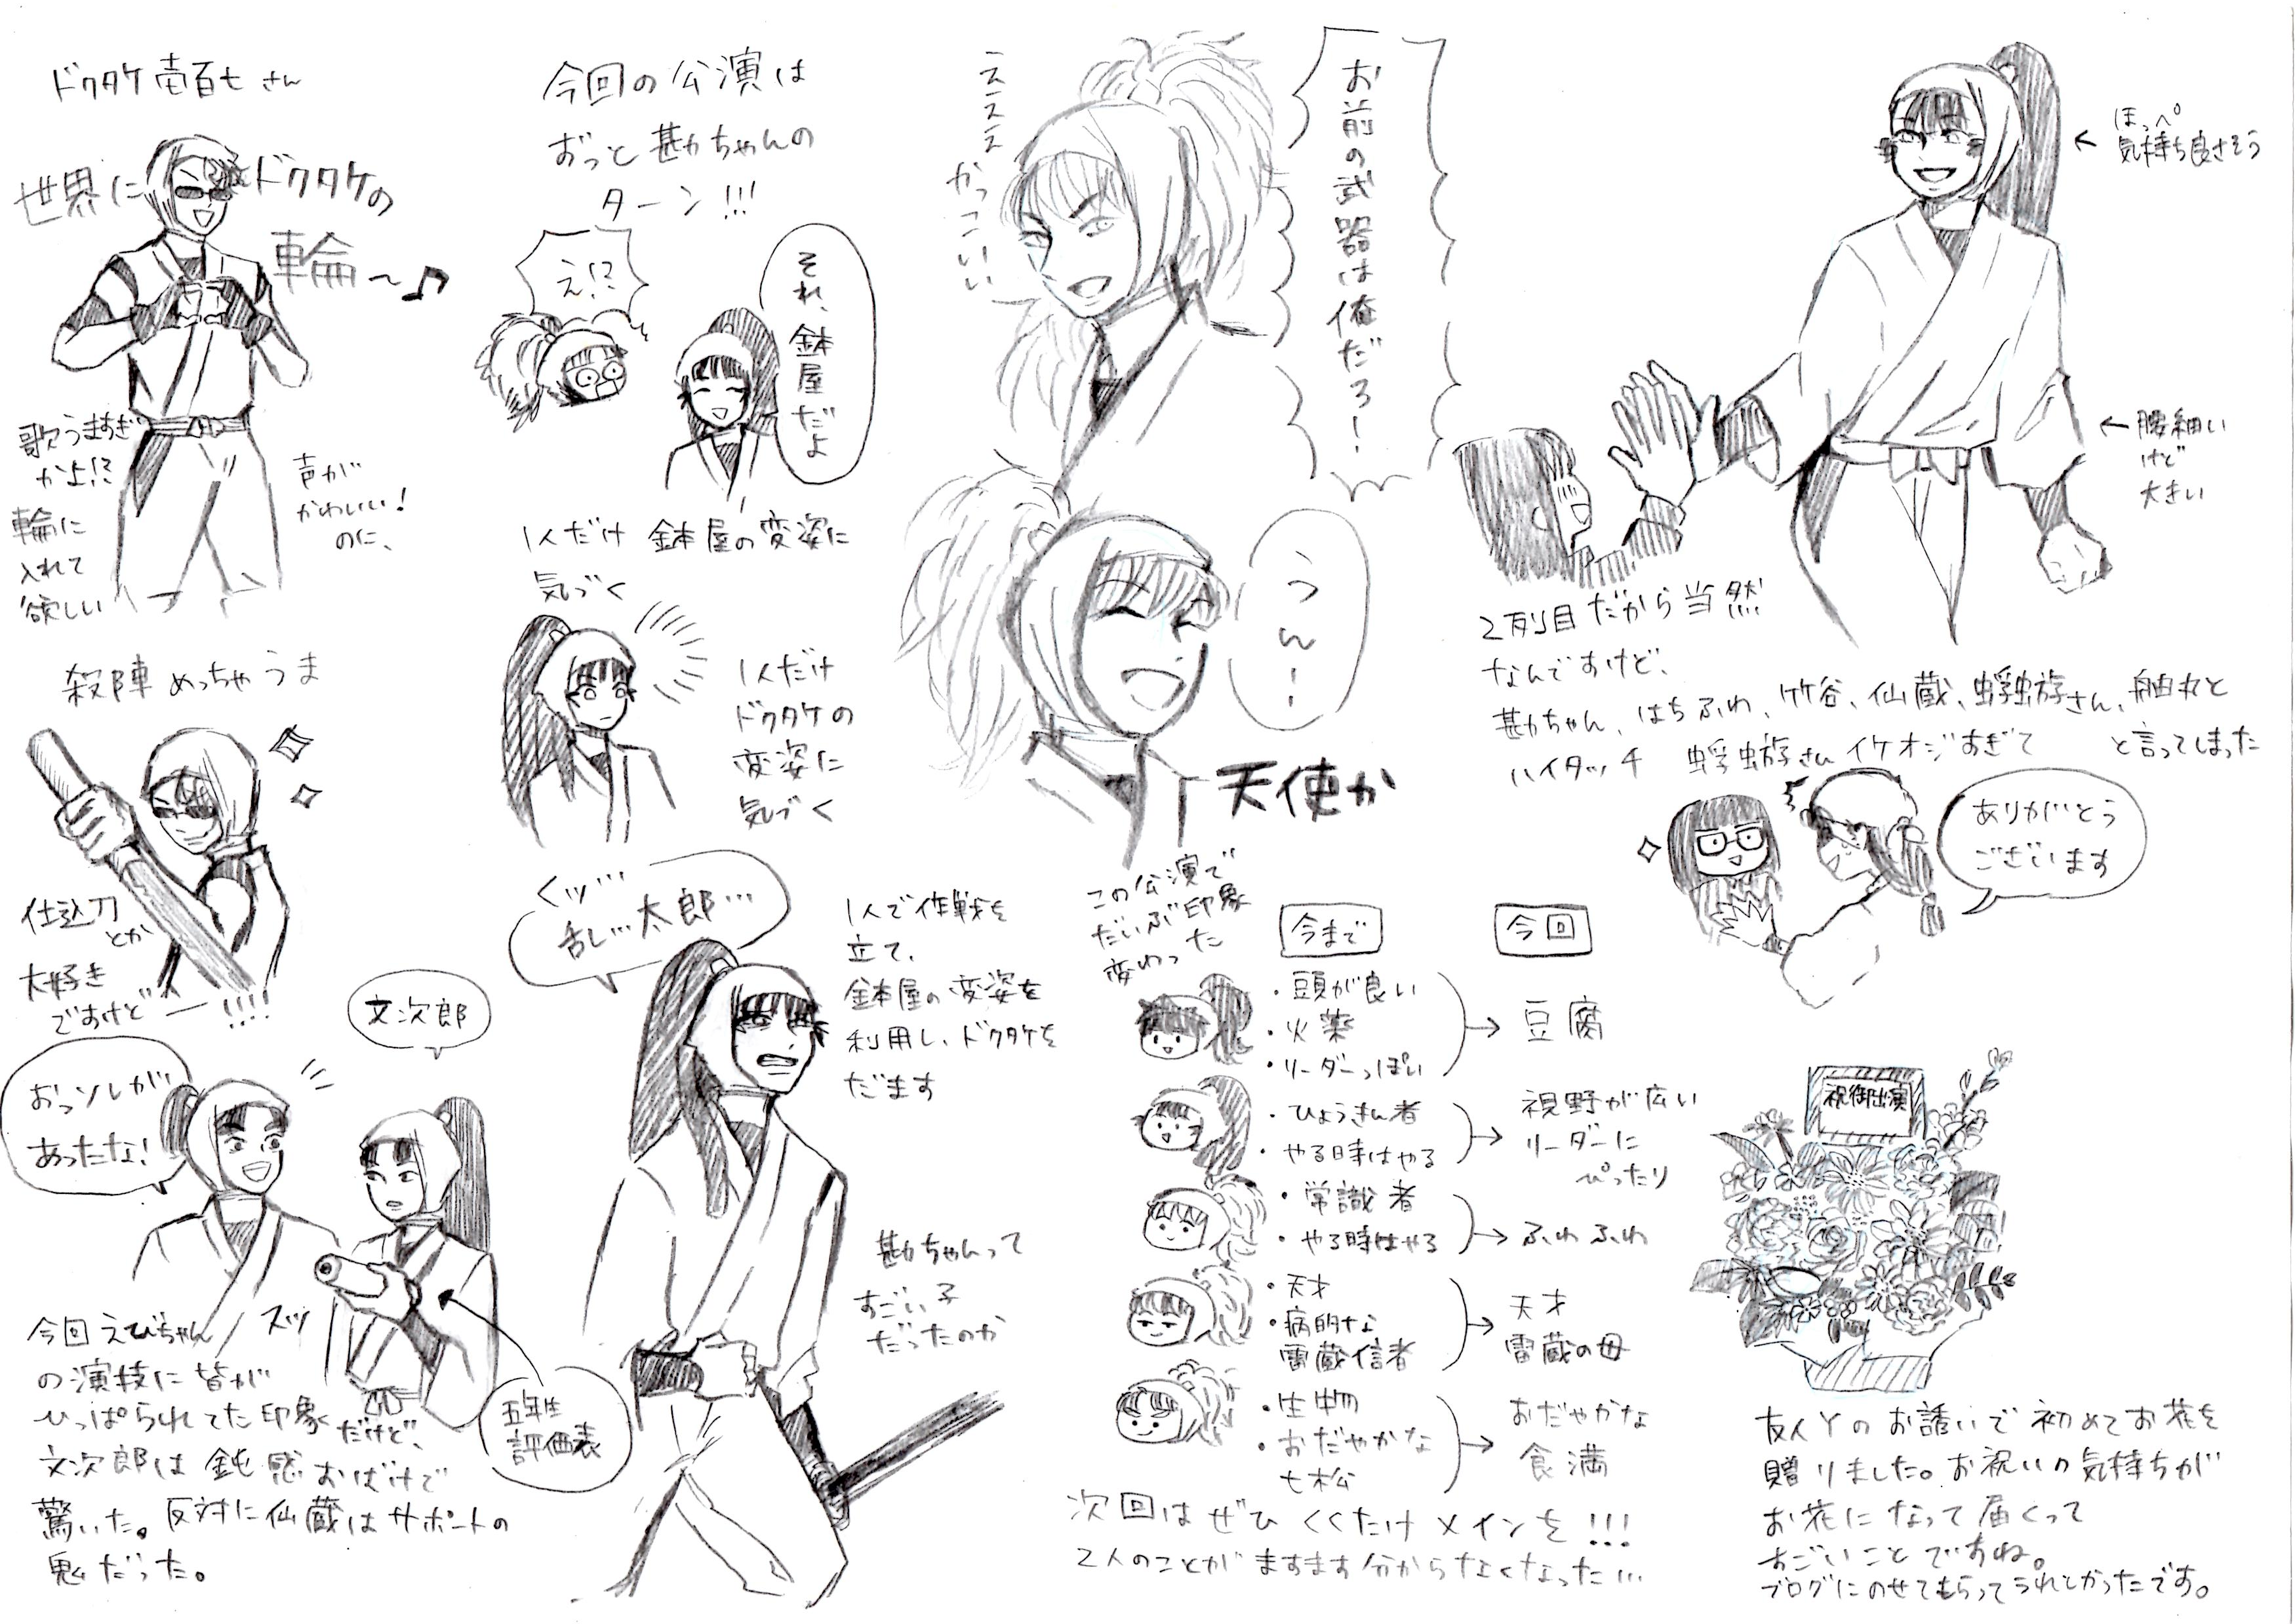 ドクタケ壱百七さん
世界にドクタケの
輪〜♪
歌うますぎ
かよ!?
輪に
入れて
欲しい
声が
かわいい!
のに、
殺陣めっちゃうま
仕込刀
とか
大好き
ですけどー!!!!
文次郎
おっソレが
あったな!
スッ
五年生
評価表
今回えびちゃん
の演技に皆が
ひっぱられてた印象だけど、
文次郎は鈍感おばけで
驚いた。反対に仙蔵はサポートの
鬼だった。
今回の公演は
ずっと勘ちゃんの
ターン!!!
え!?
それ、鉢屋だよ
1人だけ鉢屋の変姿に
気づく
1人だけ
ドクタケの
変姿に
気づく
くッ…
乱…太郎…
1人で作戦を
立て、
鉢屋の変姿を
利用し、ドクタケを
だます
勘ちゃんって
すごい子
だったのか
えーえええ
かっこいい
お前の武器は俺だろー!
うんーー
天使か
この公演で
だいぶ印象
変わった
今まで
今回
・頭が良い
・火薬
・リーダーっぽい
豆腐
・ひょうきん者
・やる時はやる
視野が広い
リーダーに
ぴったり
・常識者
・やる時はやる
ふわふわ
・天才
・病的な
雷蔵信者
天才
雷蔵の母
・生物
・おだやかな
七松
おだやかな
食満
次回はぜひくくたけメインを!!!
2人のことがますます分からなくなった…
←ほっぺ
気持ち良さそう
←腰細い
けど
大きい
2列目だから当然
なんですけど、
勘ちゃん、はちふわ、竹谷、仙蔵、蜉蝣さん、舳丸と
ハイタッチ 蜉蝣さんイケオジすぎて
と言ってしまった
ありがとう
ございます
祝御出演
友人Yのお誘いで初めてお花を
贈りました。お祝いの気持ちが
お花になって届くって
すごいことですね。
ブログにのせてもらってうれしかったです。